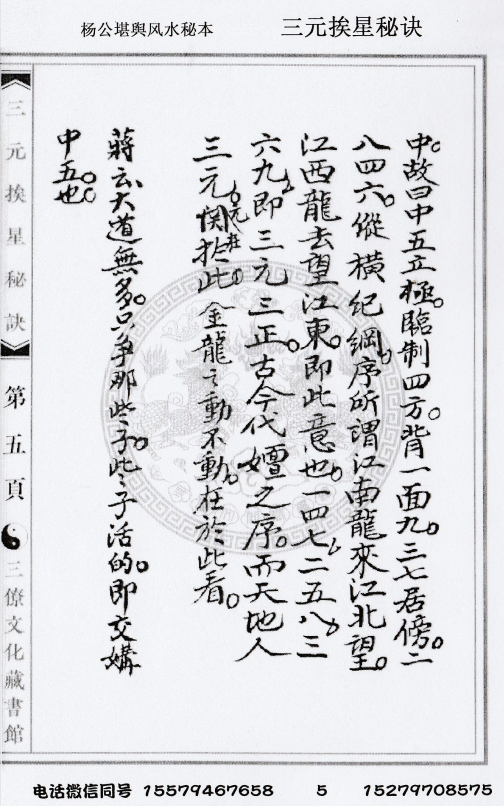 杨公堪舆风水秘本
三元挨星秘诀
中故曰中五立極。臨制四方。背一面九。三七居傍。二
八四六。縱橫紀綱。序所謂江南龍來江北望。
江西龍去望江東。即此意也。一四七二五八三
六九即三元三正。古今代嬗之序。而天地人
三元関在此。金龍之動不動。在於此看。
蔣云大道無多。只争那些子。此子活的。即交媾
中五也。
三元挨星秘訣
第五頁
三僚文化藏書館
电话微信同号 15579467658 5 15279708575